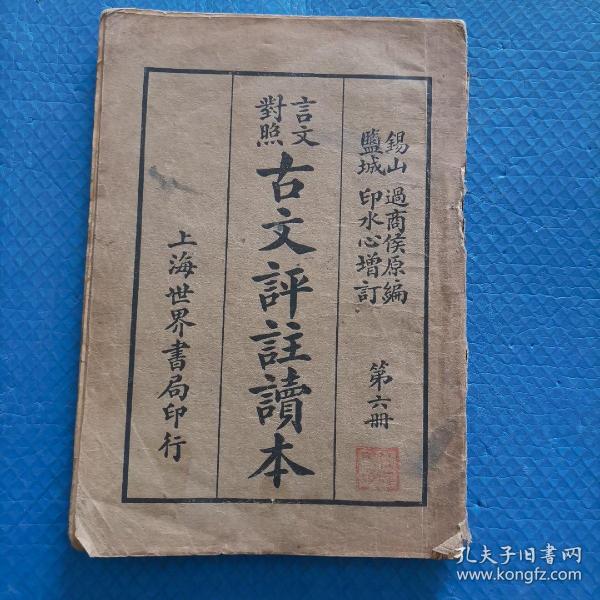 錫山 過商侯原編
鹽城 印水心增訂
第六冊
言文
對照
古文評註讀本
上海世界書局印行
孔夫子旧书网
www.kongfz.com